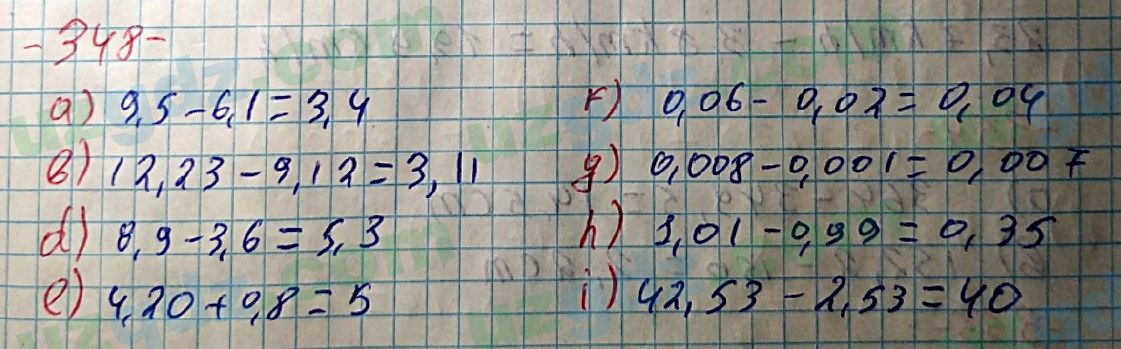 -348-
a) 9,5 - 6,1 = 3,4
b) 12,23 - 9,12 = 3,11
d) 8,9 - 3,6 = 5,3
e) 4,20 + 0,8 = 5
f) 0,06 - 0,02 = 0,04
g) 0,008 - 0,001 = 0,007
h) 1,01 - 0,99 = 0,35
i) 42,53 - 2,53 = 40